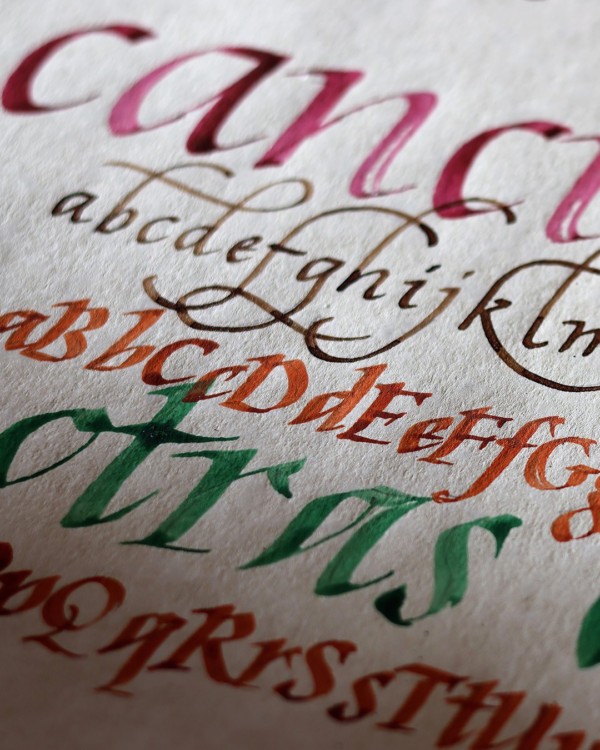 canc
abcdefghijklm
aBbCcDdEeFfGg
otras
pQqRrSsTtUu